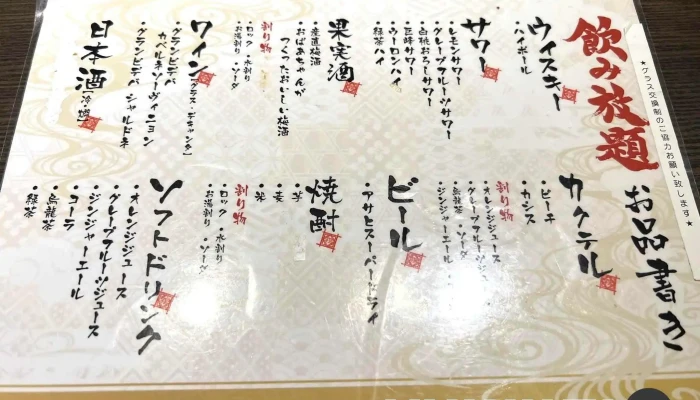 飲み放題
お品書き
★グラス交換制のご協力お願い致します★
ウィスキー
・ハイボール
サワー
・レモンサワー
・グレープフルーツサワー
・白桃おろしサワー
・巨峰サワー
・ウーロンハイ
・緑茶ハイ
果実酒
・産直梅酒
・おばあちゃんが
つくったおいしい梅酒
割り物
・ロック ・水割り
・お湯割り ・ソーダ
ワイン【グラス・デキャンタ】
・グランビデパ
カベルネソーヴィニヨン
・グランビデパ シャルドネ
日本酒【冷・燗】
カクテル
・ピーチ
・カシス
割り物
・オレンジジュース
・グレープフルーツジュース
・烏龍茶 ・ソーダ
・ジンジャーエール
ビール
・アサヒスーパードライ
焼酎
・芋
・麦
・米
割り物
・ロック ・水割り
・お湯割り ・ソーダ
ソフトドリンク
・オレンジジュース
・グレープフルーツジュース
・ジンジャーエール
・コーラ
・烏龍茶
・緑茶